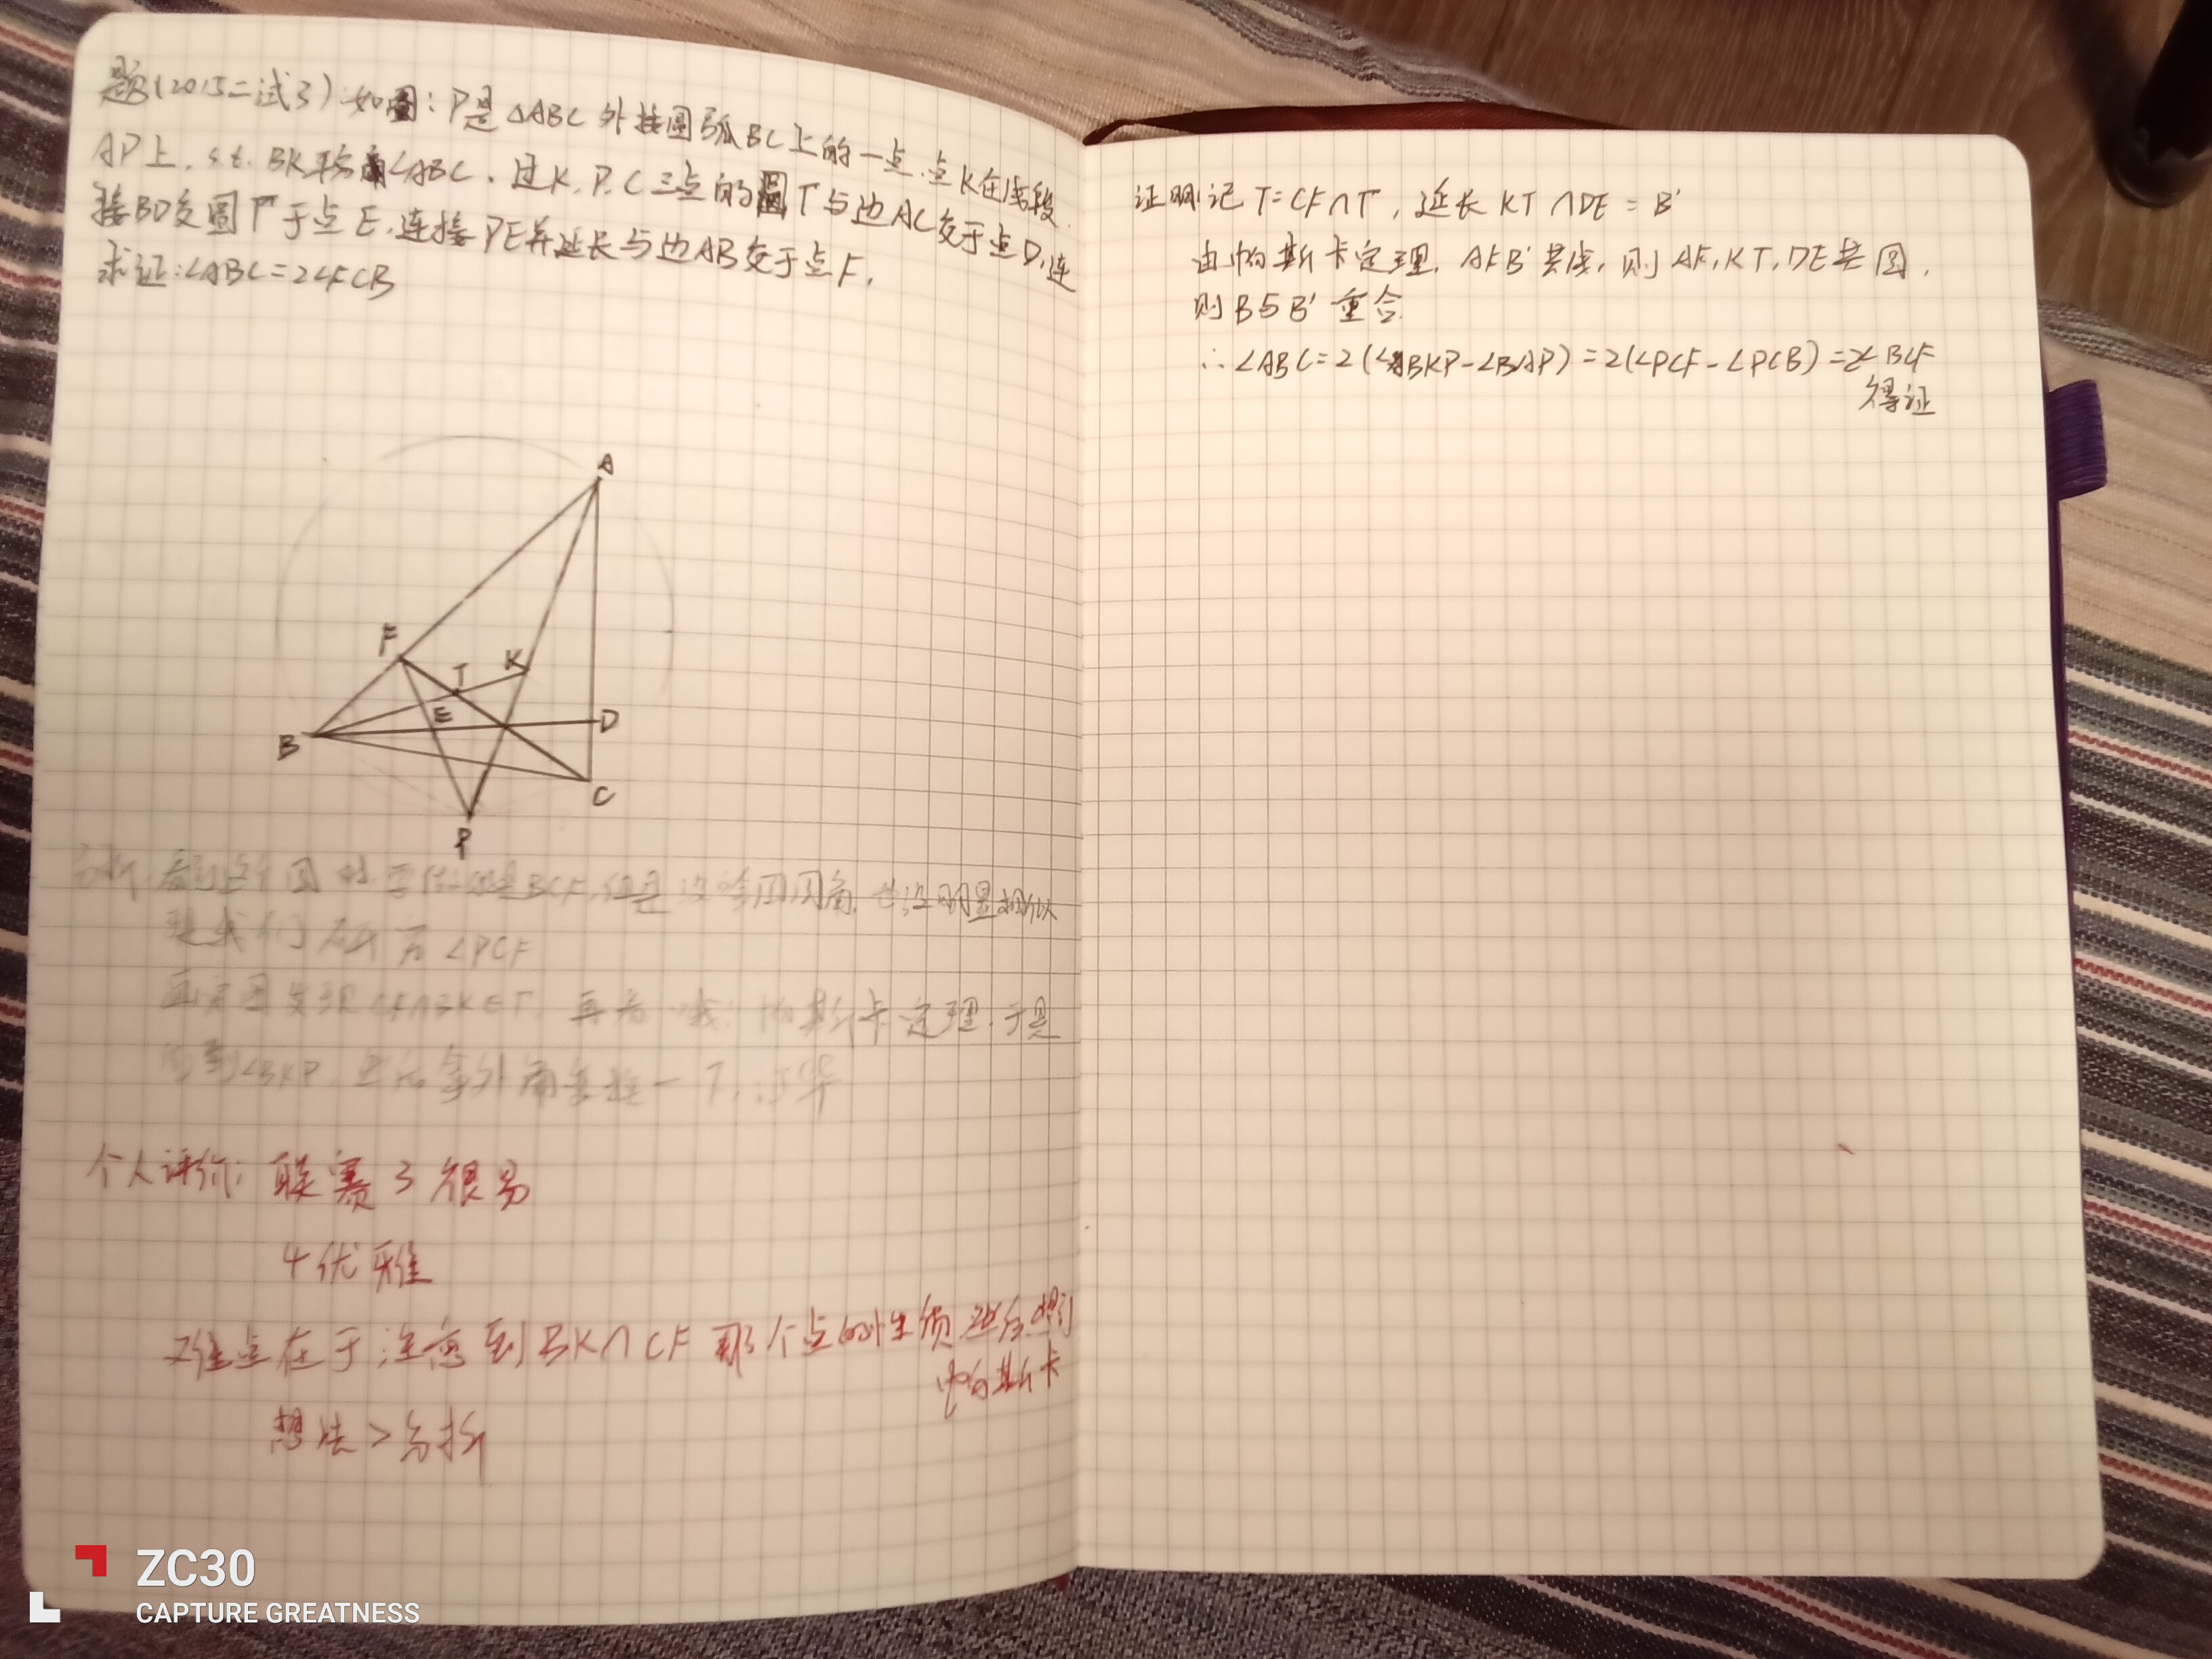 题(2015二试3) 如图：P是△ABC 外接圆弧BC上的一点,点K在线段
AP上, s.t. BK平分∠ABC. 过K,P,C三点的圆Γ与边AC交于点D,连
接BD交圆Γ于点E,连接PE并延长与边AB交于点F,
求证:∠ABC=2∠FCB
A
F
T
K
E
D
B
C
P
分析: 看到这个图 BCF,但是没啥圆周角, 也没明显相似
∠PCF
CF∩BK∈Γ, 再看 帕斯卡定理. 于是
∠BKP, 外角 一下, 证毕
个人评价: 联赛3 很易
4优雅
难点在于注意到BK∩CF 那个点的性质 进而想到
帕斯卡
想法>分析
证明:记 T=CF∩Γ, 延长 KT∩DE=B'
由帕斯卡定理, AFB'共线, 则 AF,KT,DE共圆,
则B与B'重合.
∴∠ABC=2(∠BKP-∠BAP)=2(∠PCF-∠PCB)=2∠BCF
得证
ZC30
CAPTURE GREATNESS